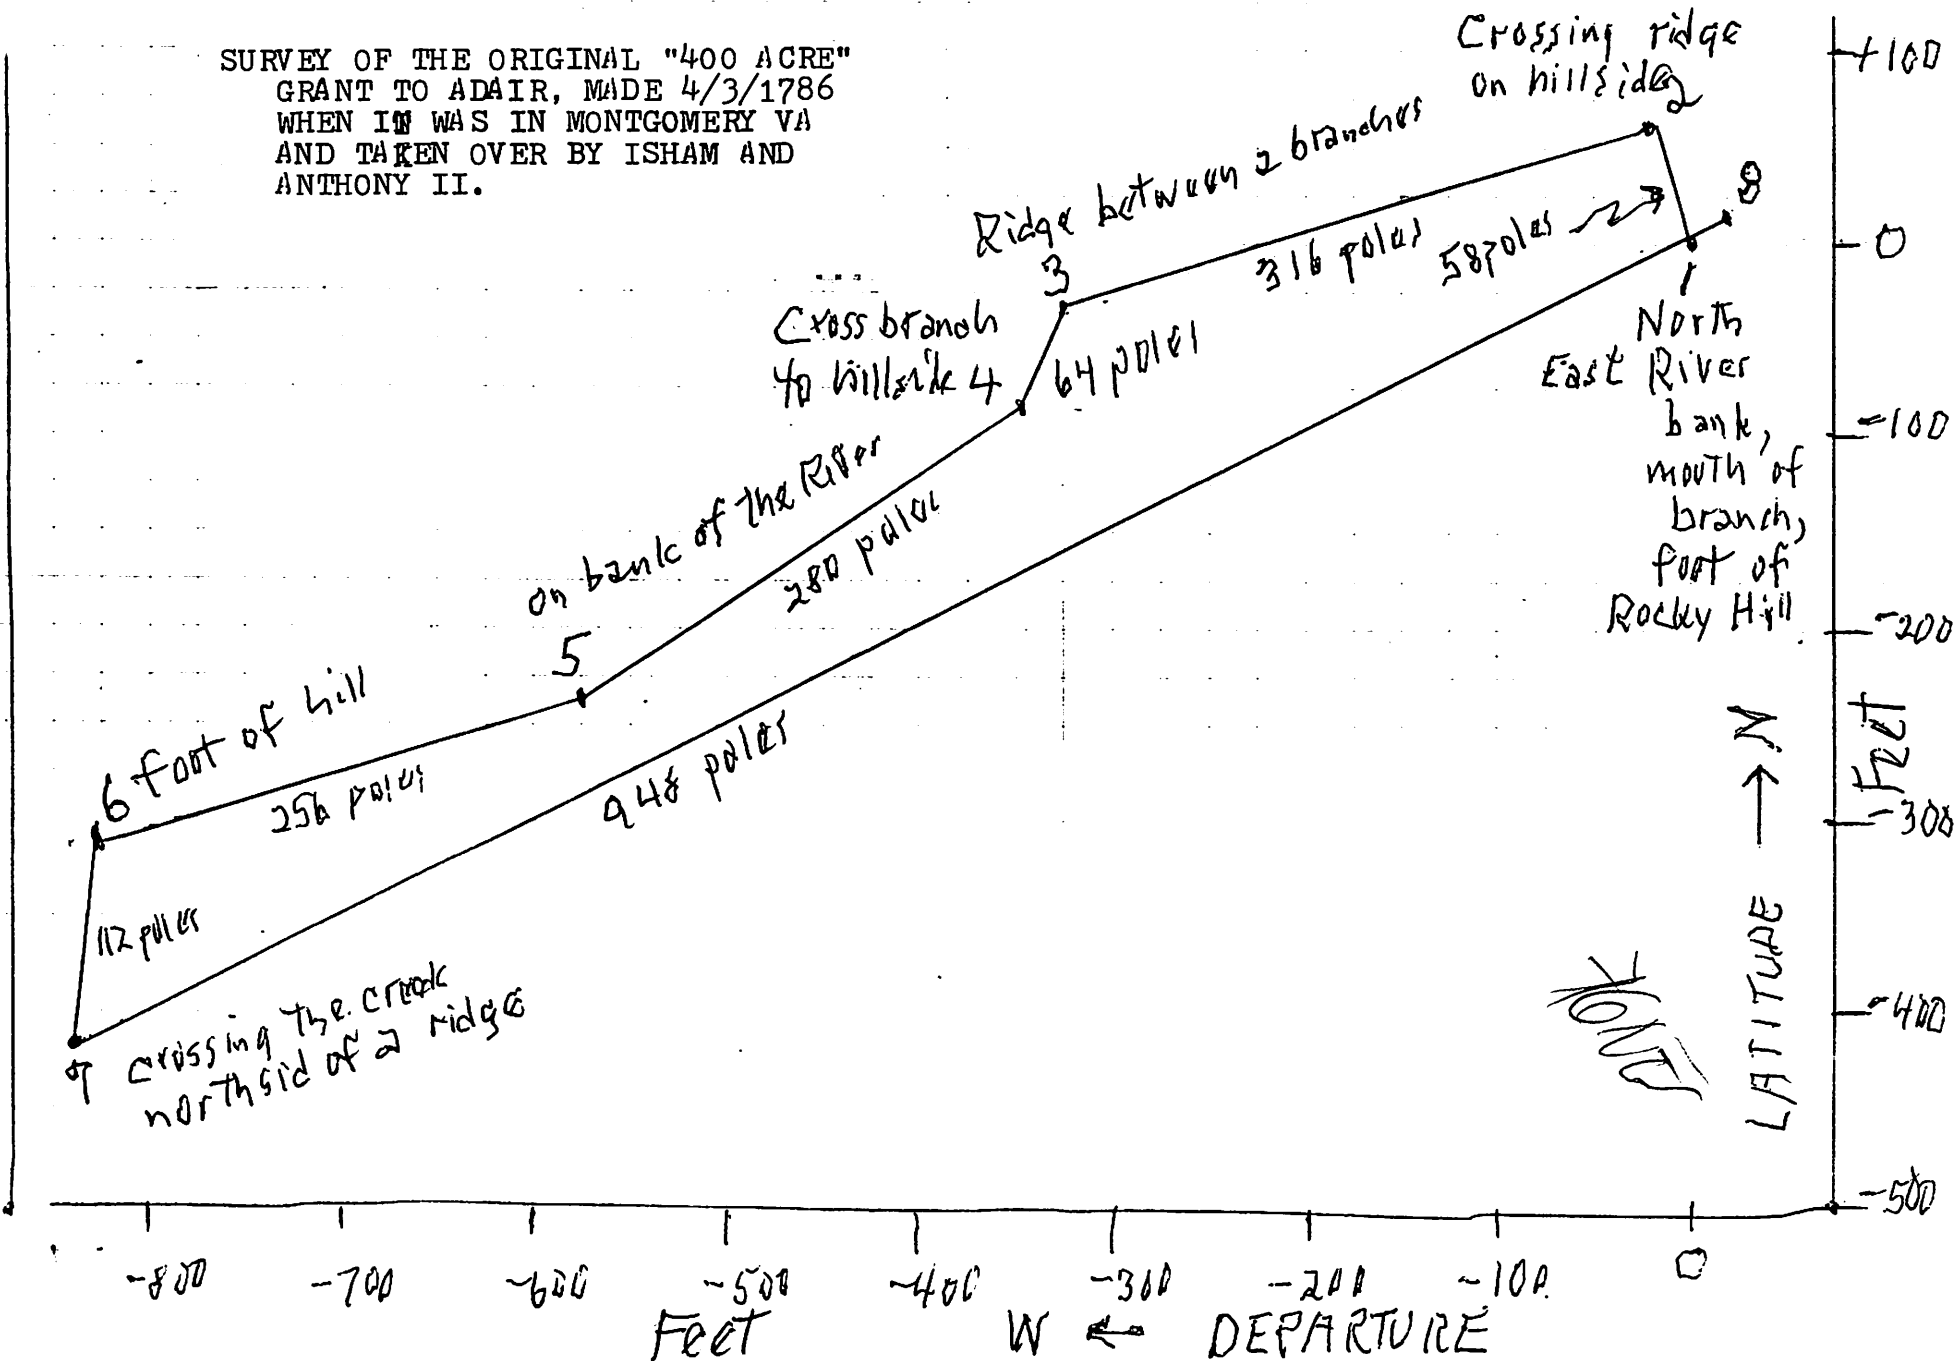 SURVEY OF THE ORIGINAL "400 ACRE"
GRANT TO ADAIR, MADE 4/3/1786
WHEN IT WAS IN MONTGOMERY VA
AND TAKEN OVER BY ISHAM AND
ANTHONY II.
Crossing ridge
on hillside
2
+100
Ridge between 2 branches
3
316 poles
58 poles
8
0
1
North
East River
bank,
mouth of
branch,
foot of
Rocky Hill
Cross branch
to hillside 4
64 poles
-100
on bank of the River
280 poles
5
-200
6 foot of hill
256 poles
948 poles
N
Feet
-300
112 poles
7
crossing the creek
north sid of a ridge
LATITUDE
-400
-500
-800
-700
-600
-500
-400
-300
-200
-100
0
Feet
W ← DEPARTURE